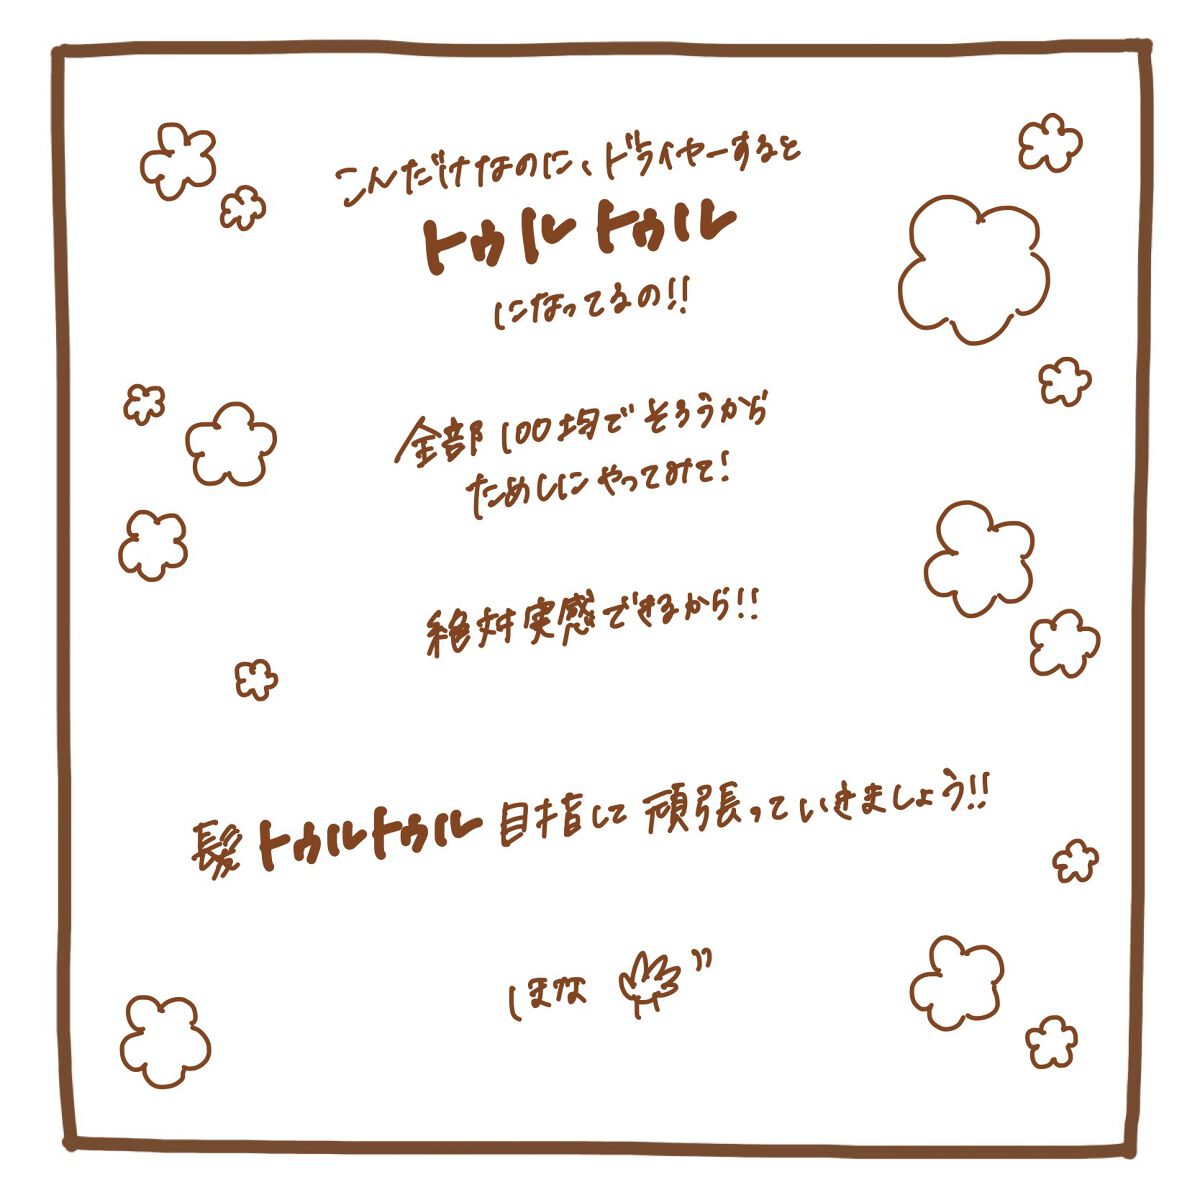 こんだけなのに、ドライヤーすると
トゥルトゥル
になってるの!!
全部100均でそろうから
ためしにやってみて!
絶対実感できるから!!
髪トゥルトゥル目指して頑張っていきましょう!!
しまな